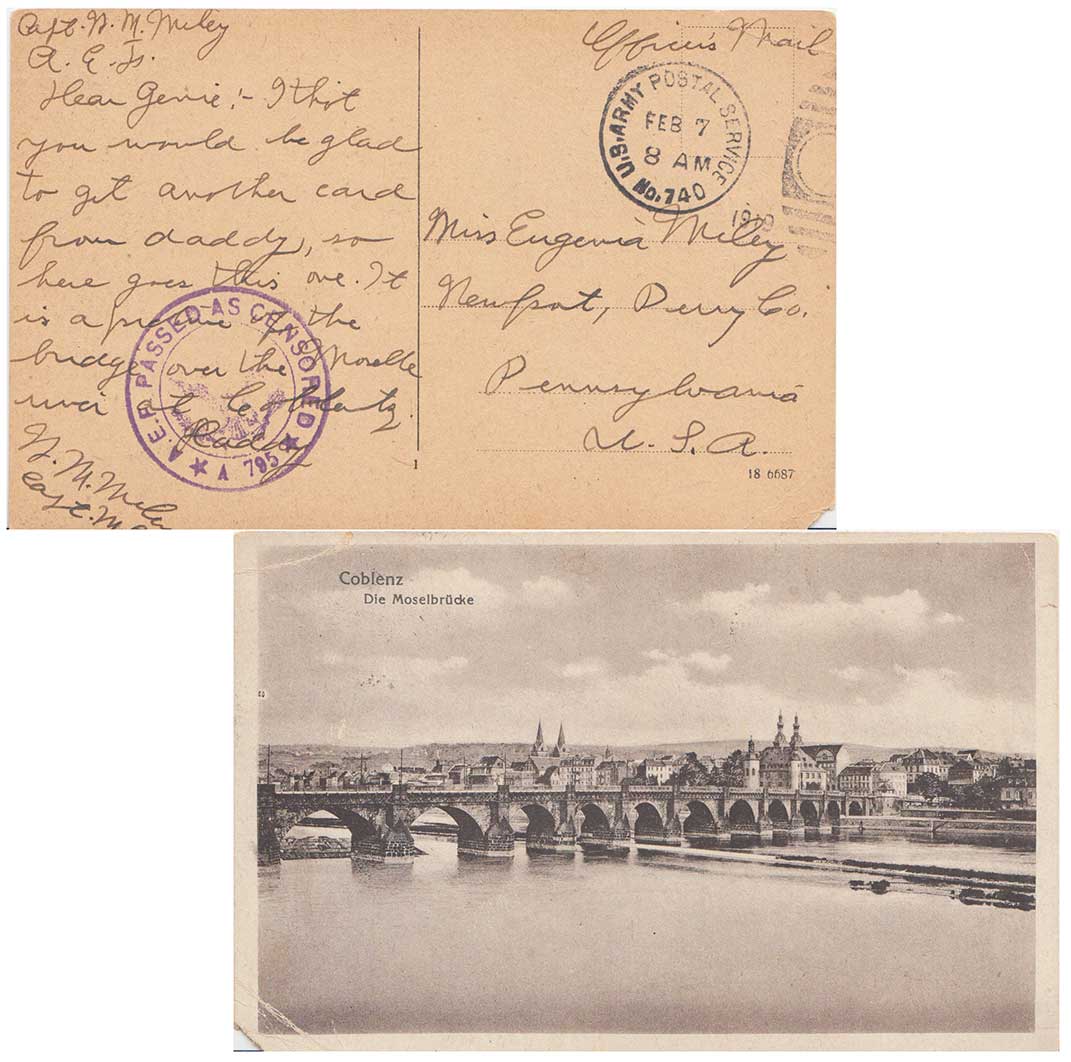 Capt. W. M. Miley
A. E. F.
Dear Genie:- I thot
you would be glad
to get another card
from daddy, so
here goes this one. It
is a picture of the
bridge over the Moselle
river at Coblentz.
Daddy
W. M. Miley
Capt. M.
A.E.F. PASSED AS CENSORED
A 795
Officer's Mail
U.S. ARMY POSTAL SERVICE
FEB 7
8 AM
No. 740
1919
Miss Eugenia Miley
Newport, Perry Co.
Pennsylvania
U. S. A.
1
18 6687
Coblenz
Die Moselbrücke